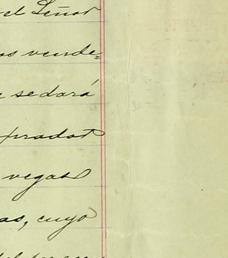 el Señor
os vende=
se dará
prados
vegas
as, cuyo